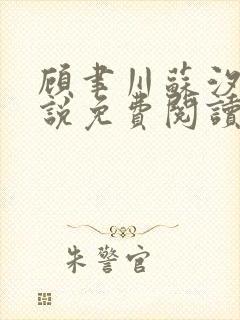 顾事川蘇汐
說免費閱讀
朱警官